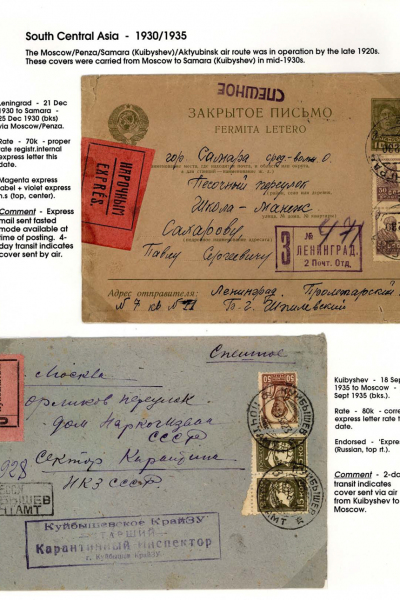 South Central Asia - 1930/1935
The Moscow/Penza/Samara (Kuibyshev)/Aktyubinsk air route was in operation by the late 1920s.
These covers were carried from Moscow to Samara (Kuibyshev) in mid-1930s.
Leningrad - 21 Dec
1930 to Samara -
25 Dec 1930 (bks)
via Moscow/Penza.
Rate - 70k - proper
rate registr.internal
express letter this
date.
Magenta express
label + violet express
h.s (top, center).
Comment - Express
mail sent fasted
mode available at
time of posting. 4-
day transit indicates
cover sent by air.
СПЕШНОЕ
ЗАКРЫТОЕ ПИСЬМО
FERMITA LETERO
НАРОЧНЫМ
EXPRÈS
гор. Самара
Песочный переулок
Школа
Самарову
Павлу Сергеевичу
З
№ 471
ЛЕНИНГРАД.
2 Почт. Отд.
Адрес отправителя: Ленинград.
Kuibyshev - 18 Sep
1935 to Moscow -
Sept 1935 (bks.).
Rate - 80k - corre
express letter rate t
date.
Endorsed - 'Expre
(Russian, top rt.).
Comment - 2-da
transit indicates
cover sent via air
from Kuibyshev to
Moscow.
Спешное
Москва
Орликов переулок
дом Наркомзема
СССР
Сектор Карантина
НКЗ СССР
50
КУЙБЫШЕВ
Куйбышевское КрайЗУ
СТАРШИЙ
Карантинный инспектор
г. Куйбышев крайЗУ